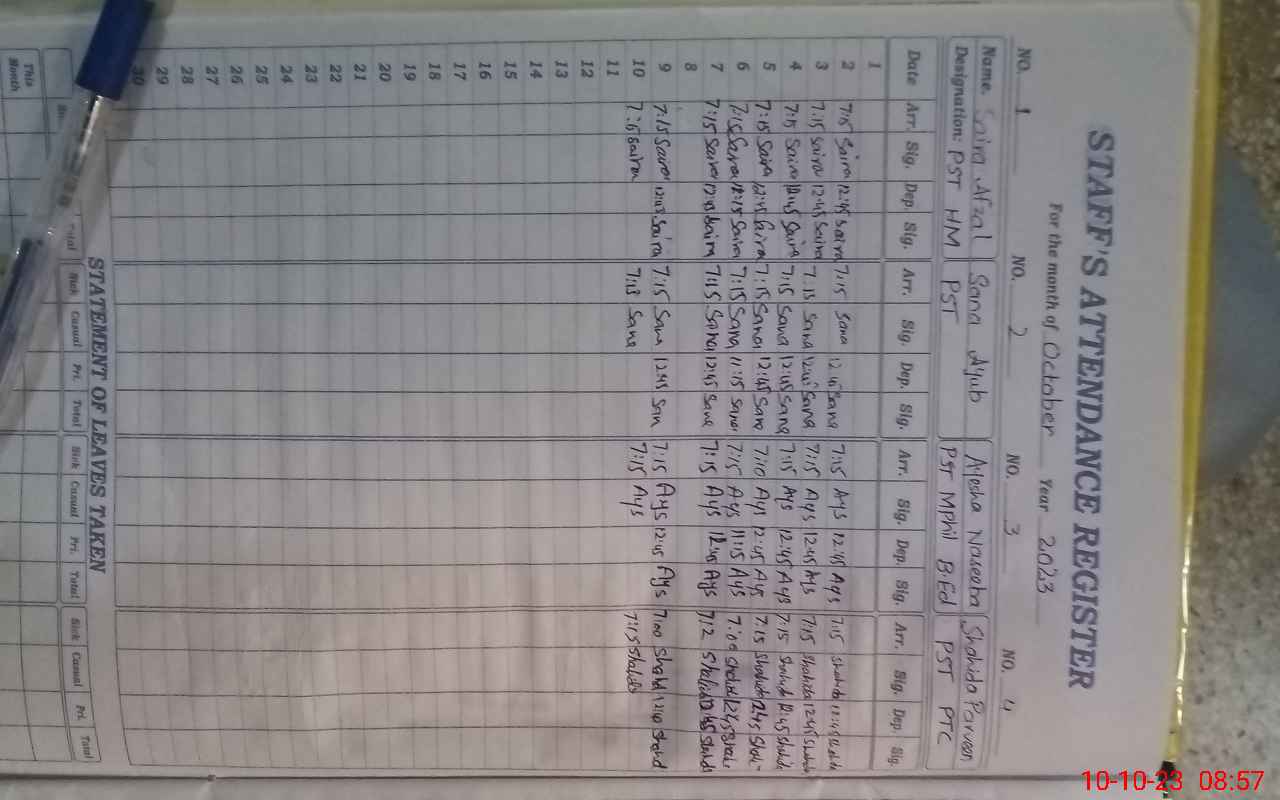 STAFF'S ATTENDANCE REGISTER
For the month of October Year 2023
NO. 1 NO. 2 NO. 3 NO. 4
Name. Saira Afzal Sana Ayub Ayesha Naseeba Shahida Parveen
Designation: PST HM PST PST MPhil B.Ed PST PTC
Date Arr. Sig. Dep. Sig. Arr. Sig. Dep. Sig. Arr. Sig. Dep. Sig. Arr. Sig. Dep. Sig.
1
2 7:15 Saira 12:45 Saira 7:15 Sana 12:45 Sana 7:15 Ays 12:45 Ays 7:15 Shahida 12:45
3 7:15 Saira 12:45 Saira 7:15 Sana 12:45 Sana 7:15 Ays 12:45 Ays 7:15 Shahida 12:45 Shahida
4 7:15 Saira 12:45 Saira 7:15 Sana 12:45 Sana 7:15 Ays 12:45 Ays 7:15 12:45
5 7:15 Saira 12:45 Saira 7:15 Sana 12:45 Sana 7:10 Ays 12:45 Ays 7:15 Shahida
6 7:15 Saira Saira 7:15 Sana 11:15 Sana 7:15 Ays 11:15 Ays
7 7:15 Saira 12:45 Saira 7:15 Sana 12:45 Sana 7:15 Ays 12:45 Ays 7:12
8
9 7:15 Saira 12:45 Saira 7:15 Sana 12:45 San 7:15 Ays 12:45 Ays 7:00 Shahid Shahid
10 Saira 7:13 Sana 7:15 Ays 7:15
11
12
13
14
15
16
17
18
19
20
21
22
23
24
25
26
27
28
29
30
STATEMENT OF LEAVES TAKEN
Total Sick Casual Pri. Total Sick Casual Pri. Total Sick Casual Pri. Total
This Month
10-10-23 08:57